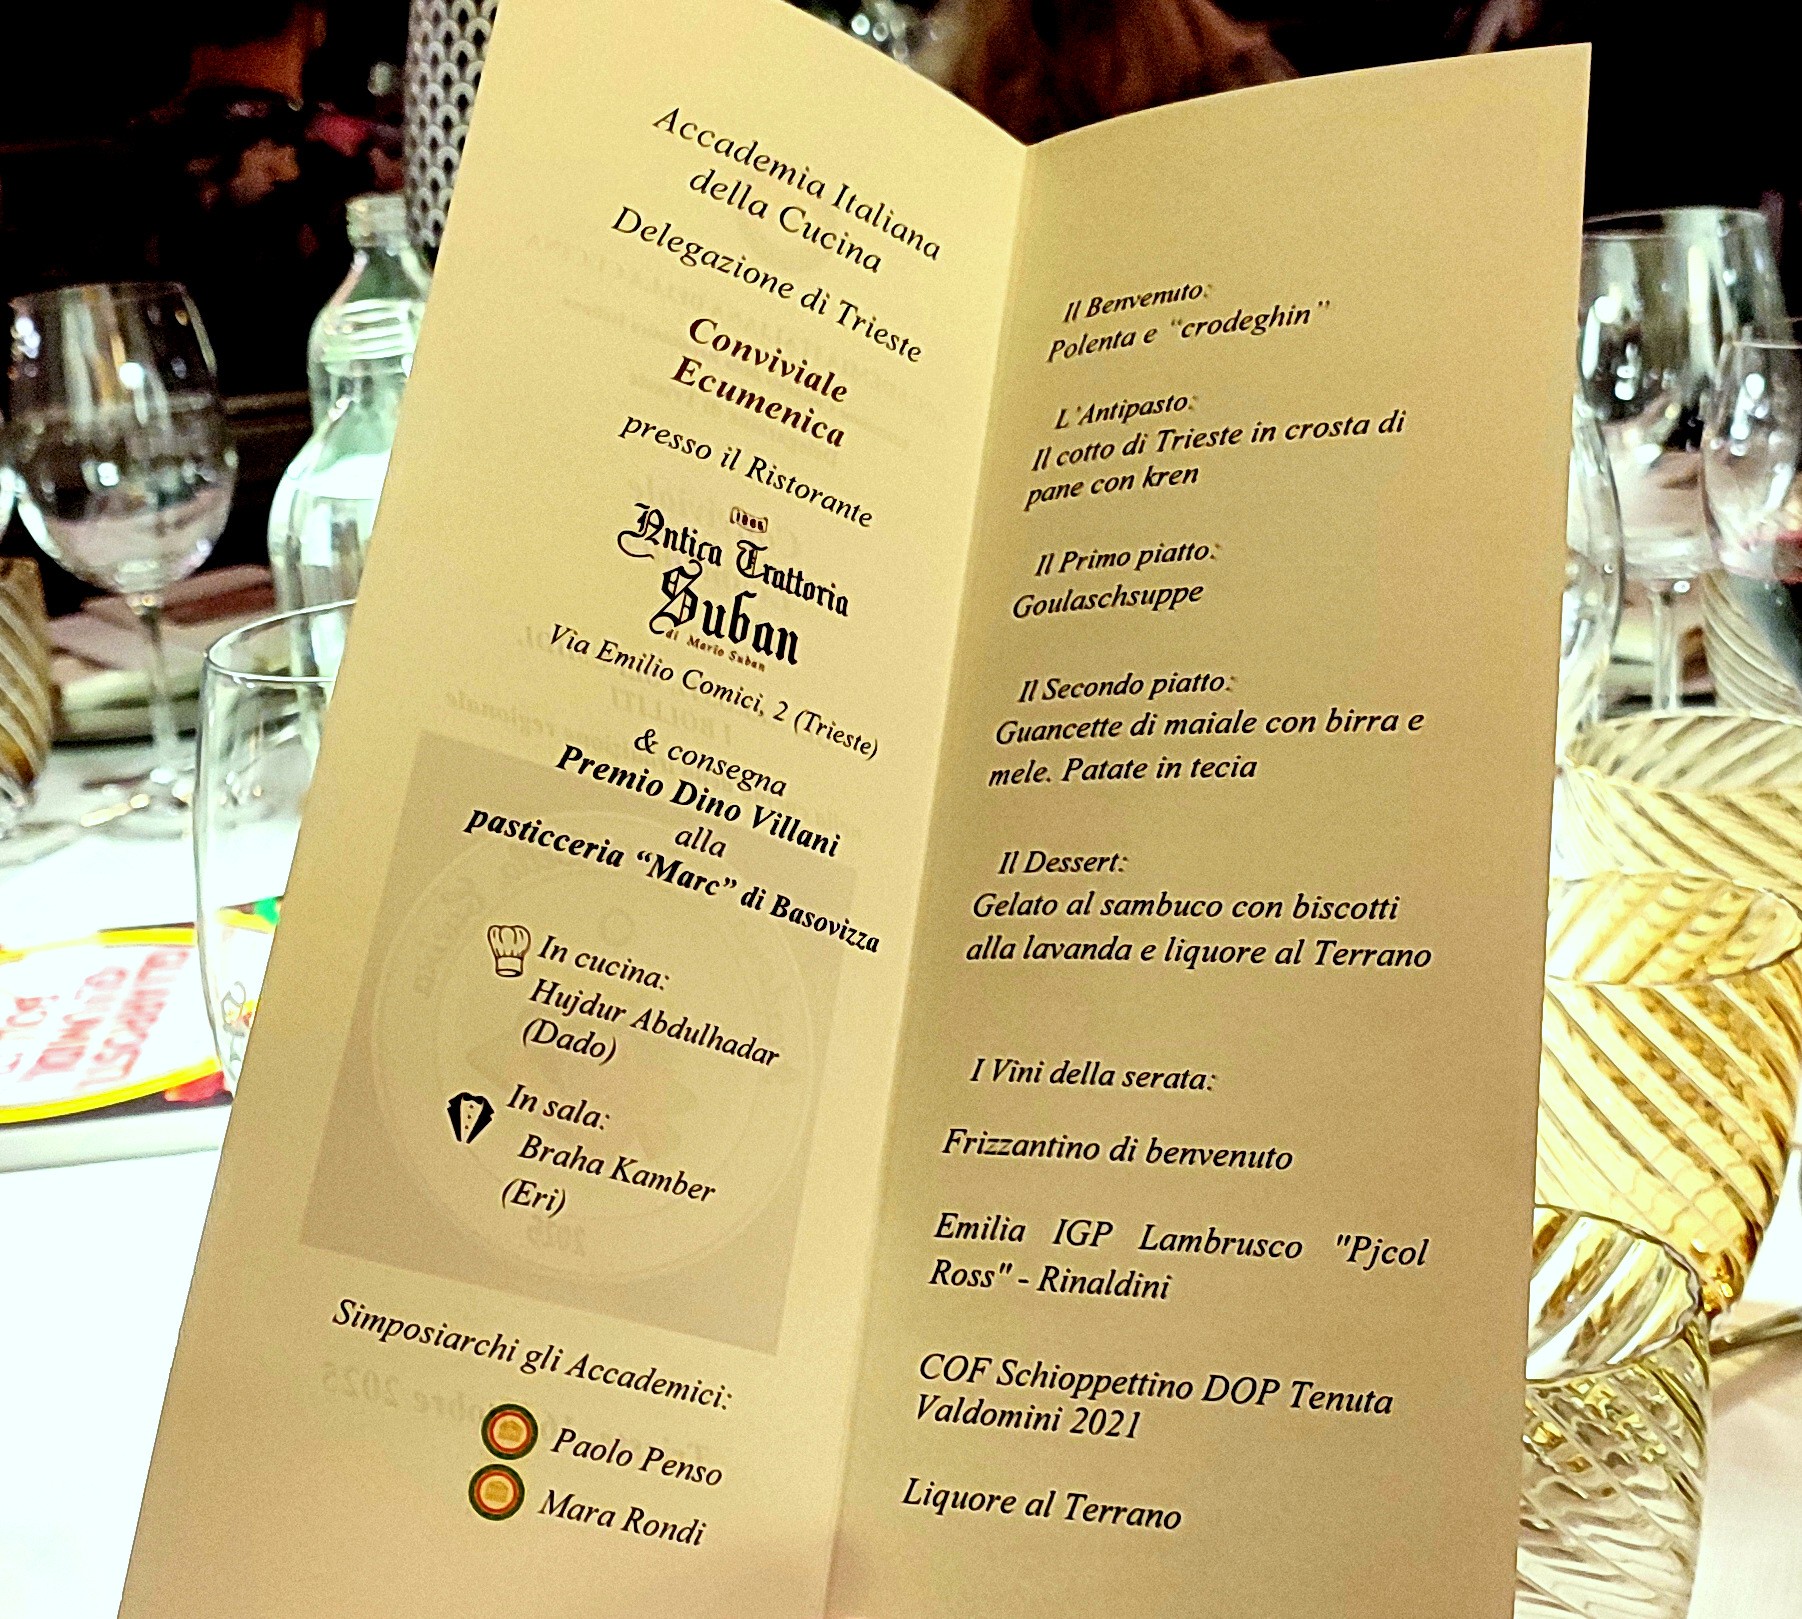 Accademia Italiana
della Cucina
Delegazione di Trieste
Conviviale
Ecumenica
presso il Ristorante
1865
Antica Trattoria
Suban
di Mario Suban
Via Emilio Comici, 2 (Trieste)
& consegna
Premio Dino Villani
alla
pasticceria “Marc” di Basovizza
In cucina:
Hujdur Abdulhadar
(Dado)
In sala:
Braha Kamber
(Eri)
Simposiarchi gli Accademici:
Paolo Penso
Mara Rondi
Il Benvenuto:
Polenta e “crodeghin”
L'Antipasto:
Il cotto di Trieste in crosta di
pane con kren
Il Primo piatto:
Goulaschsuppe
Il Secondo piatto:
Guancette di maiale con birra e
mele. Patate in tecia
Il Dessert:
Gelato al sambuco con biscotti
alla lavanda e liquore al Terrano
I Vini della serata:
Frizzantino di benvenuto
Emilia IGP Lambrusco "Pjcol
Ross" - Rinaldini
COF Schioppettino DOP Tenuta
Valdomini 2021
Liquore al Terrano